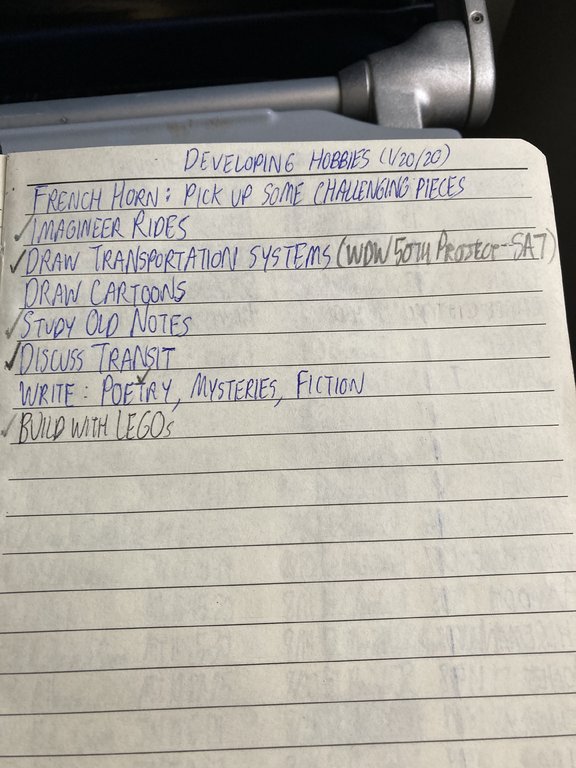 DEVELOPING HOBBIES (1/20/20)
FRENCH HORN: PICK UP SOME CHALLENGING PIECES
✓ IMAGINEER RIDES
✓ DRAW TRANSPORTATION SYSTEMS (WDW 50TH PROJECT-SAT)
DRAW CARTOONS
✓ STUDY OLD NOTES
✓ DISCUSS TRANSIT
WRITE: POETRY✓, MYSTERIES, FICTION
✓ BUILD WITH LEGOs